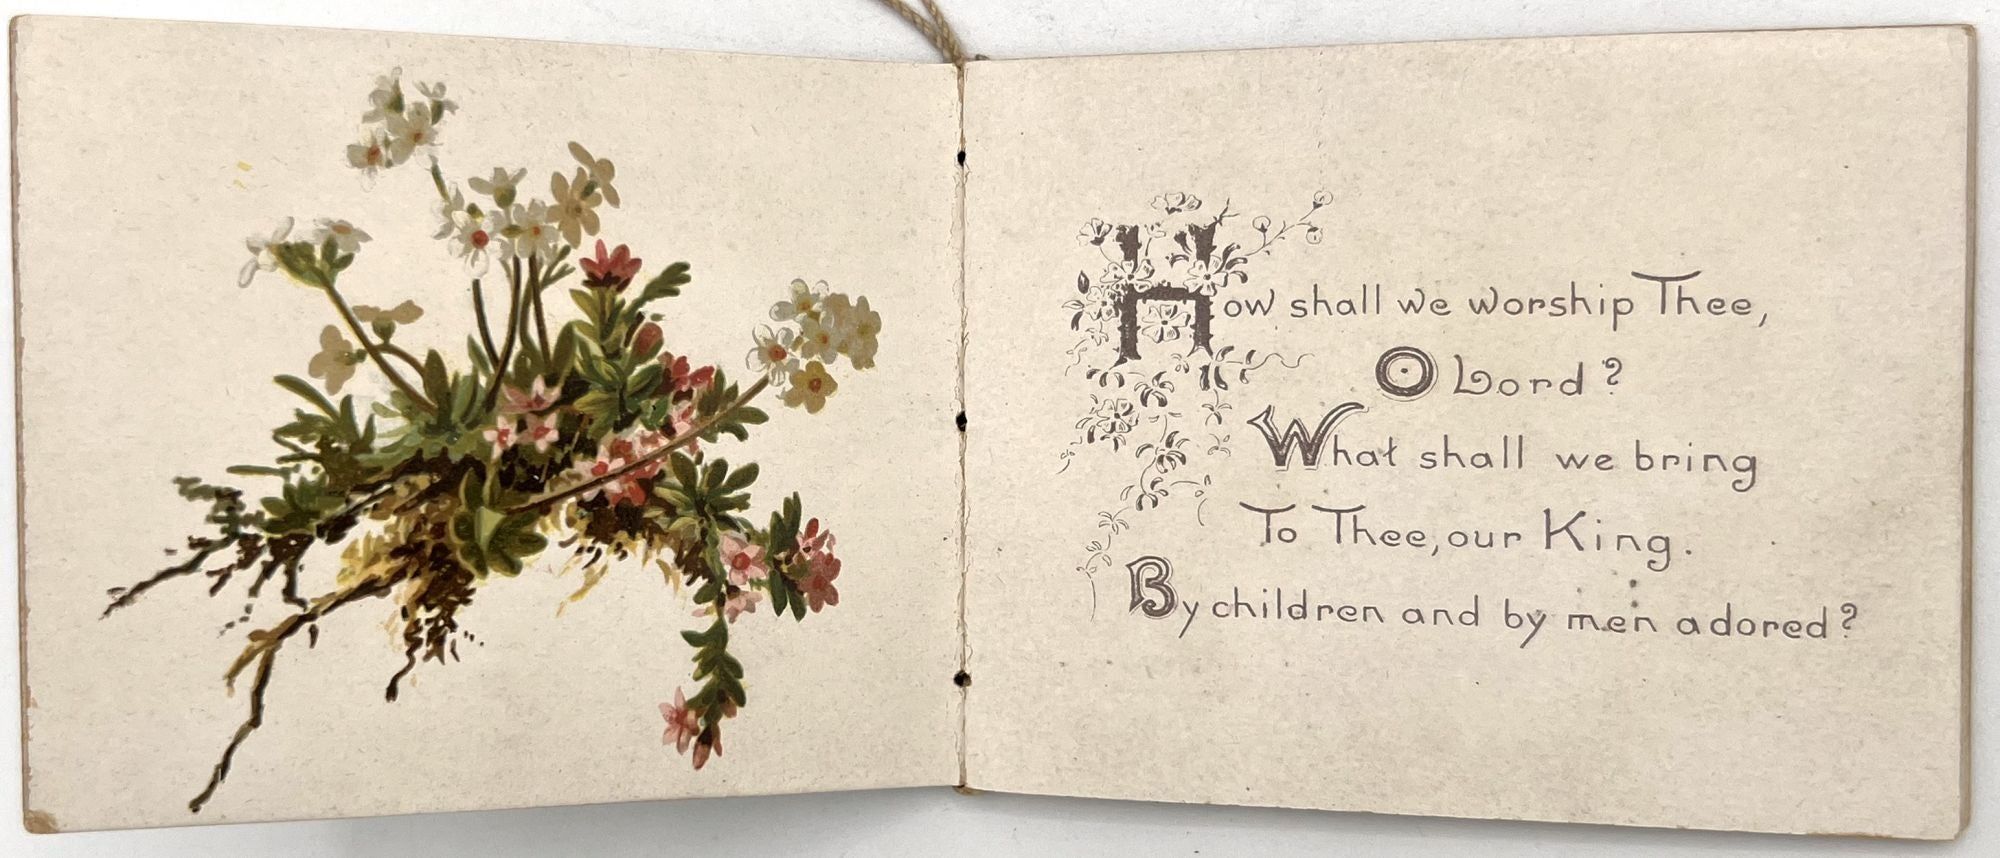 How shall we worship Thee,
O Lord?
What shall we bring
To Thee, our King.
By children and by men adored?